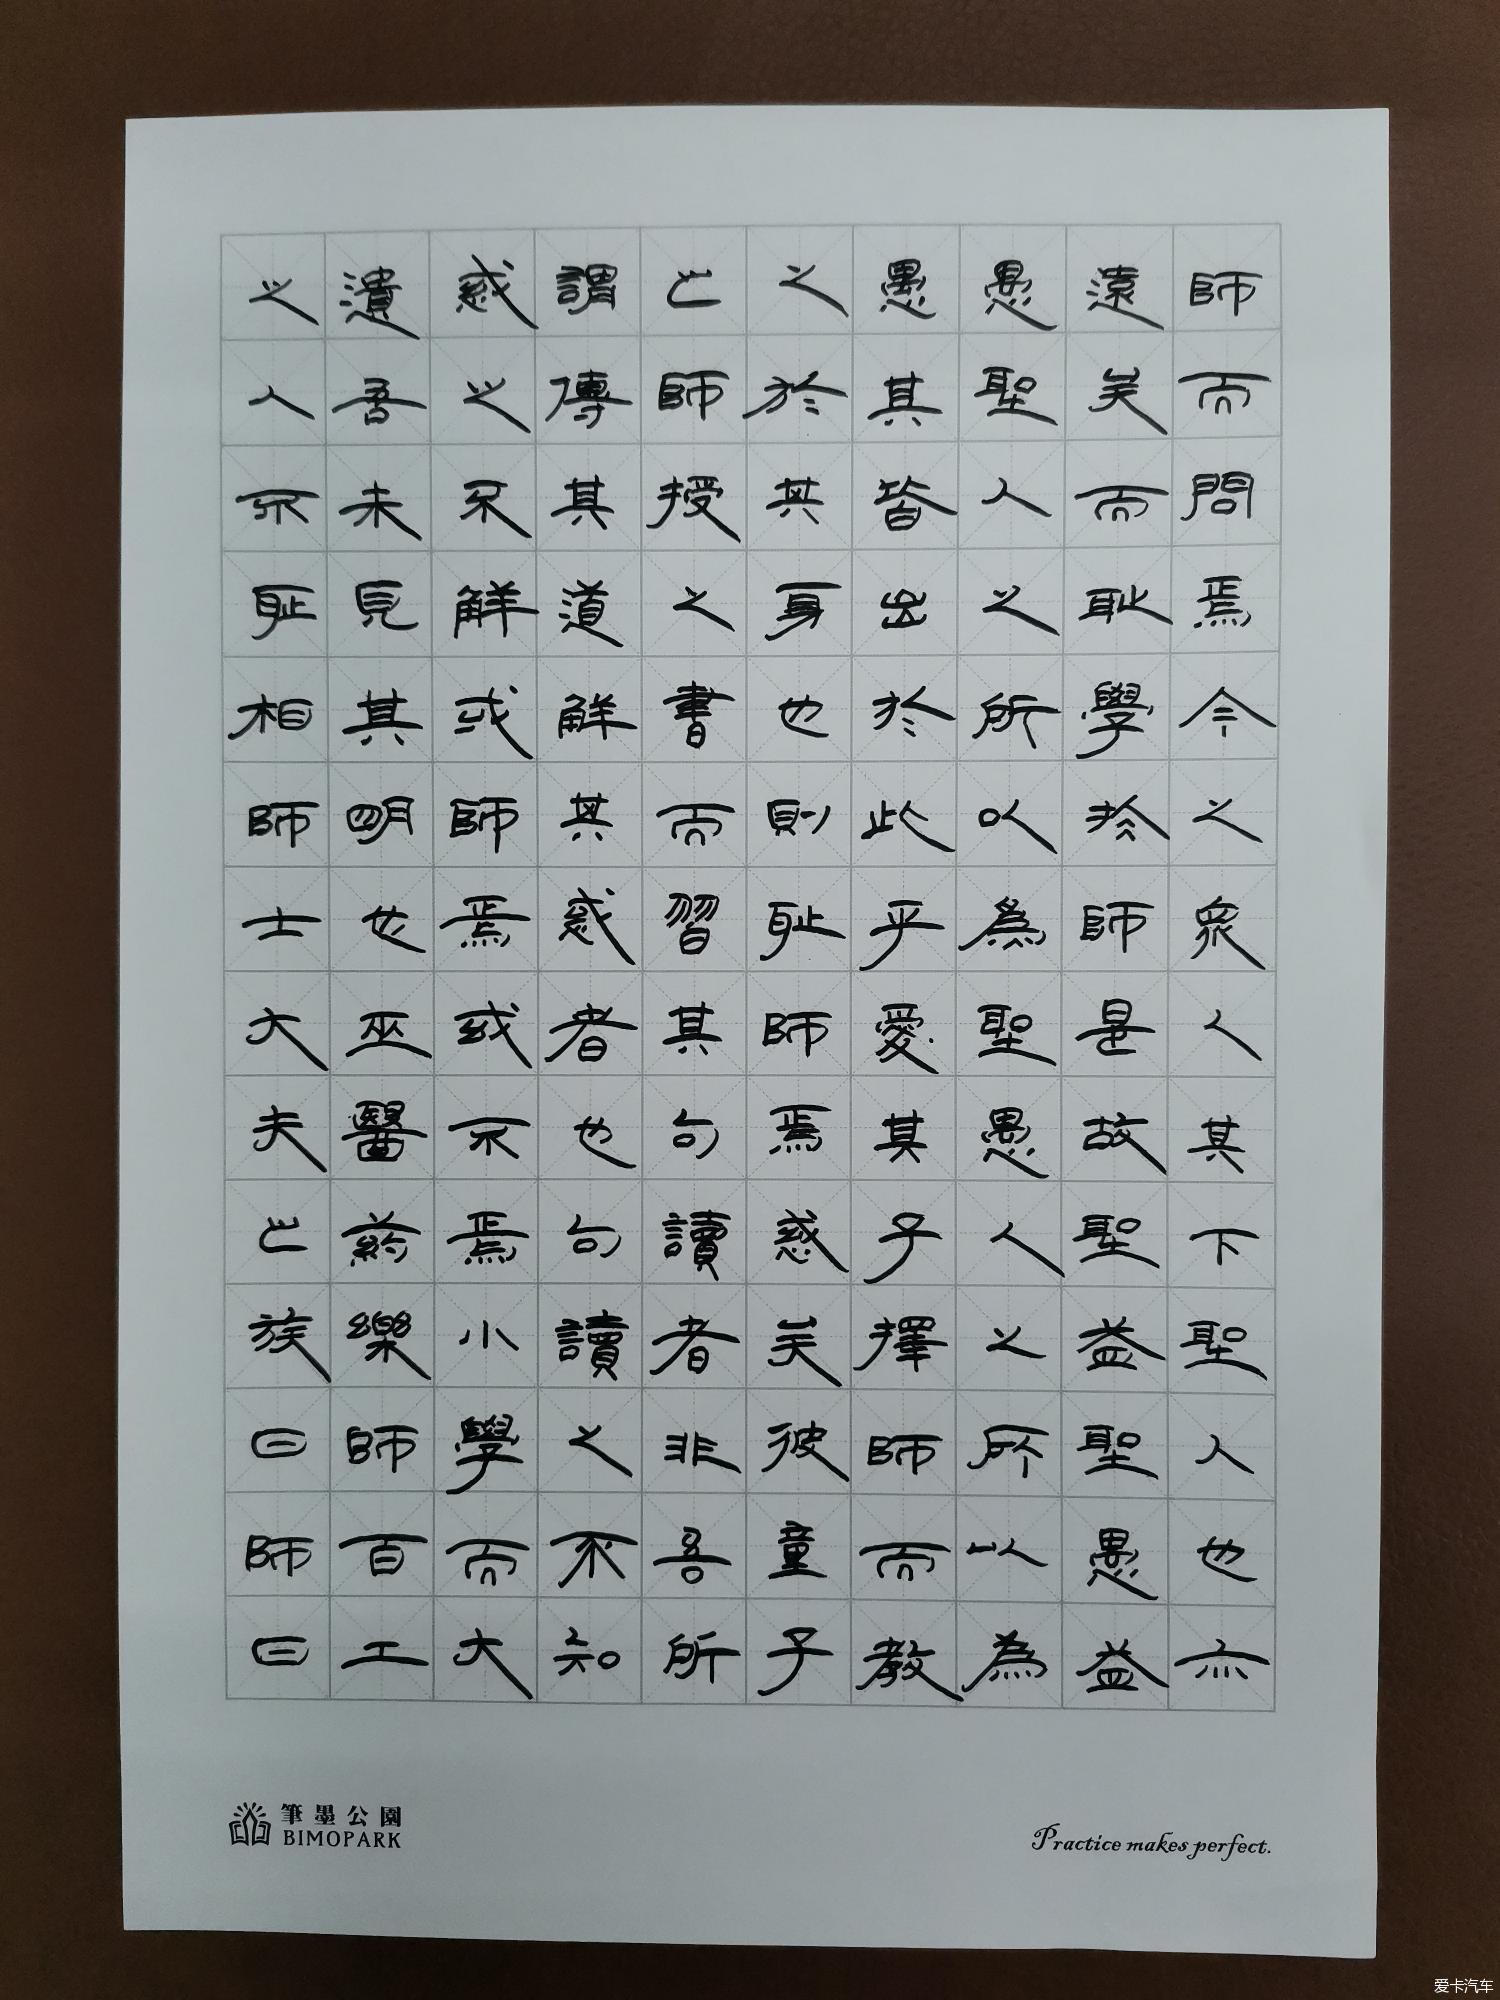 師而問焉今之衆人其下聖人也亦
遠矣而耻學於師是故聖益聖愚益
愚聖人之所以為聖愚人之所以為
愚其皆出於此乎愛其子擇師而教
之於其身也則耻師焉惑矣彼童子
之師授之書而習其句讀者非吾所
謂傳其道解其惑者也句讀之不知
惑之不解或師焉或不焉小學而大
遺吾未見其明也巫醫藥樂師百工
之人不耻相師士大夫之族曰師曰
筆墨公園
BIMOPARK
Practice makes perfect.
爱卡汽车